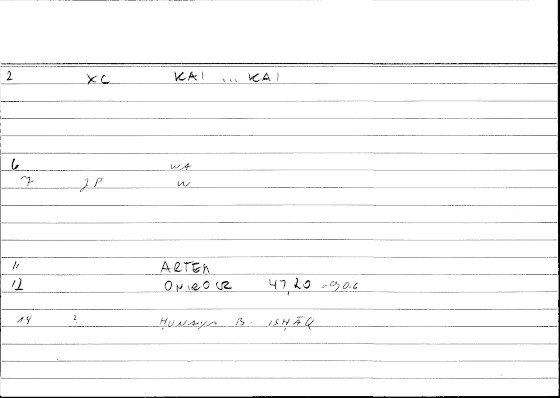 2 XC KAI ... KAI
6 WA
7 JP W
11 ARTEM
12 ONIROCR 47,20
14 ? ḤUNAYN B. ISḤĀQ